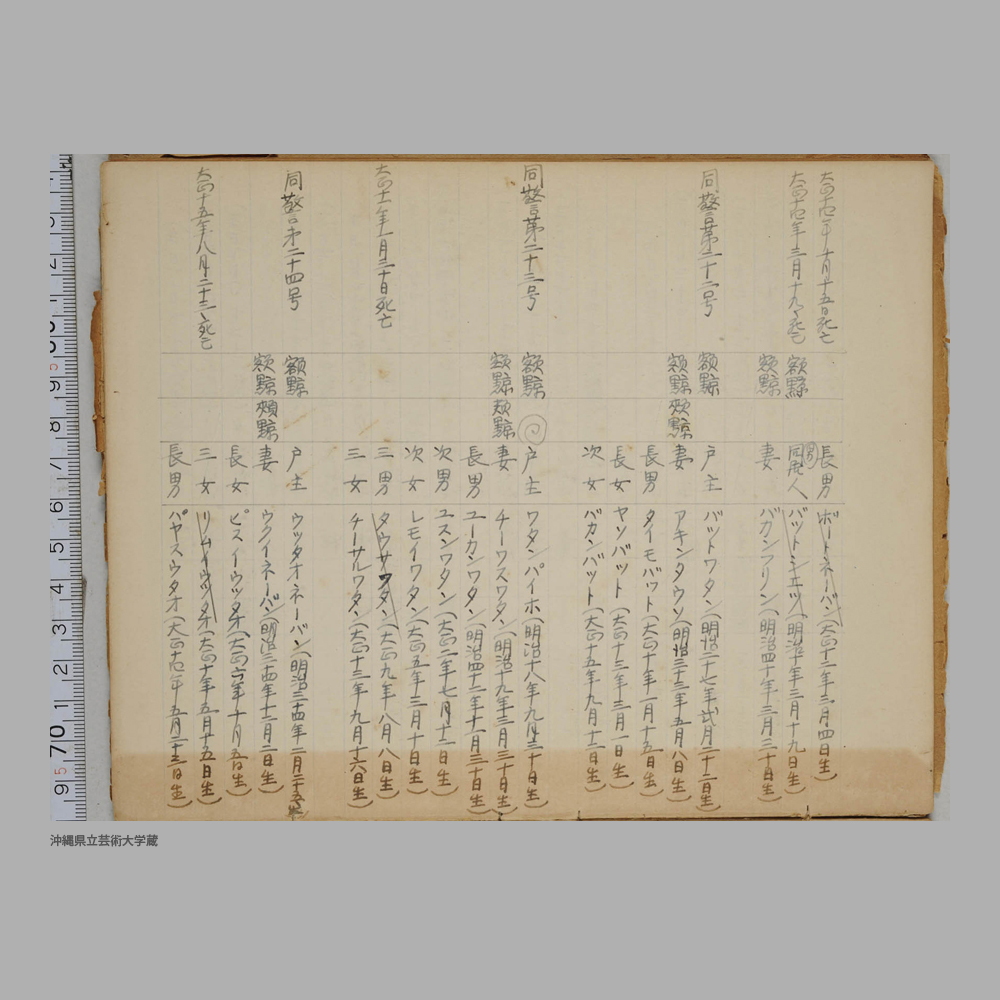 大正十四年十月十五日死亡 長男 ボートネーバン(大正十二年三月四日生)
大正十四年三月十九日死亡 額黥 同居人 バットシエツ(明治十年三月十九日生)
額黥 妻 バカンフリン(明治四十年三月三十日生)
同警第二十二号 額黥 戸主 バットワタン(明治二十七年弐月二十二日生)
額黥 頬黥 妻 アキンタウソ(明治三十三年五月八日生)
長男 タイモバット(大正十年一月十五日生)
長女 ヤソバット(大正十三年三月一日生)
次女 バカンバット(大正十五年九月十二日生)
同警第二十三号 額黥 戸主 ワタンパイホ(明治十八年九月三十日生)
額黥 頬黥 妻 チーワスワタン(明治十九年三月三十日生)
長男 ユーカンワタン(明治四十二年十一月三十日生)
次男 ユスンワタン(大正二年七月十二日生)
次女 レモイワタン(大正五年三月十日生)
大正十一年一月三十日死亡 三男 タウサワタン(大正九年八月八日生)
三女 チーサルワタン(大正十三年九月十六日生)
同警第二十四号 額黥 戸主 ウッタオネーバン(明治三十四年二月二十五日生)
額黥 頬黥 妻 ウクイネーバン(明治三十四年十二月二日生)
長女 ピスイウッタオ(大正六年十月五日生)
大正十五年八月二十三日死亡 三女 リムイウッタオ(大正十年五月十五日生)
長男 パヤスウタオ(大正十四年五月二十三日生)
沖縄県立芸術大学蔵